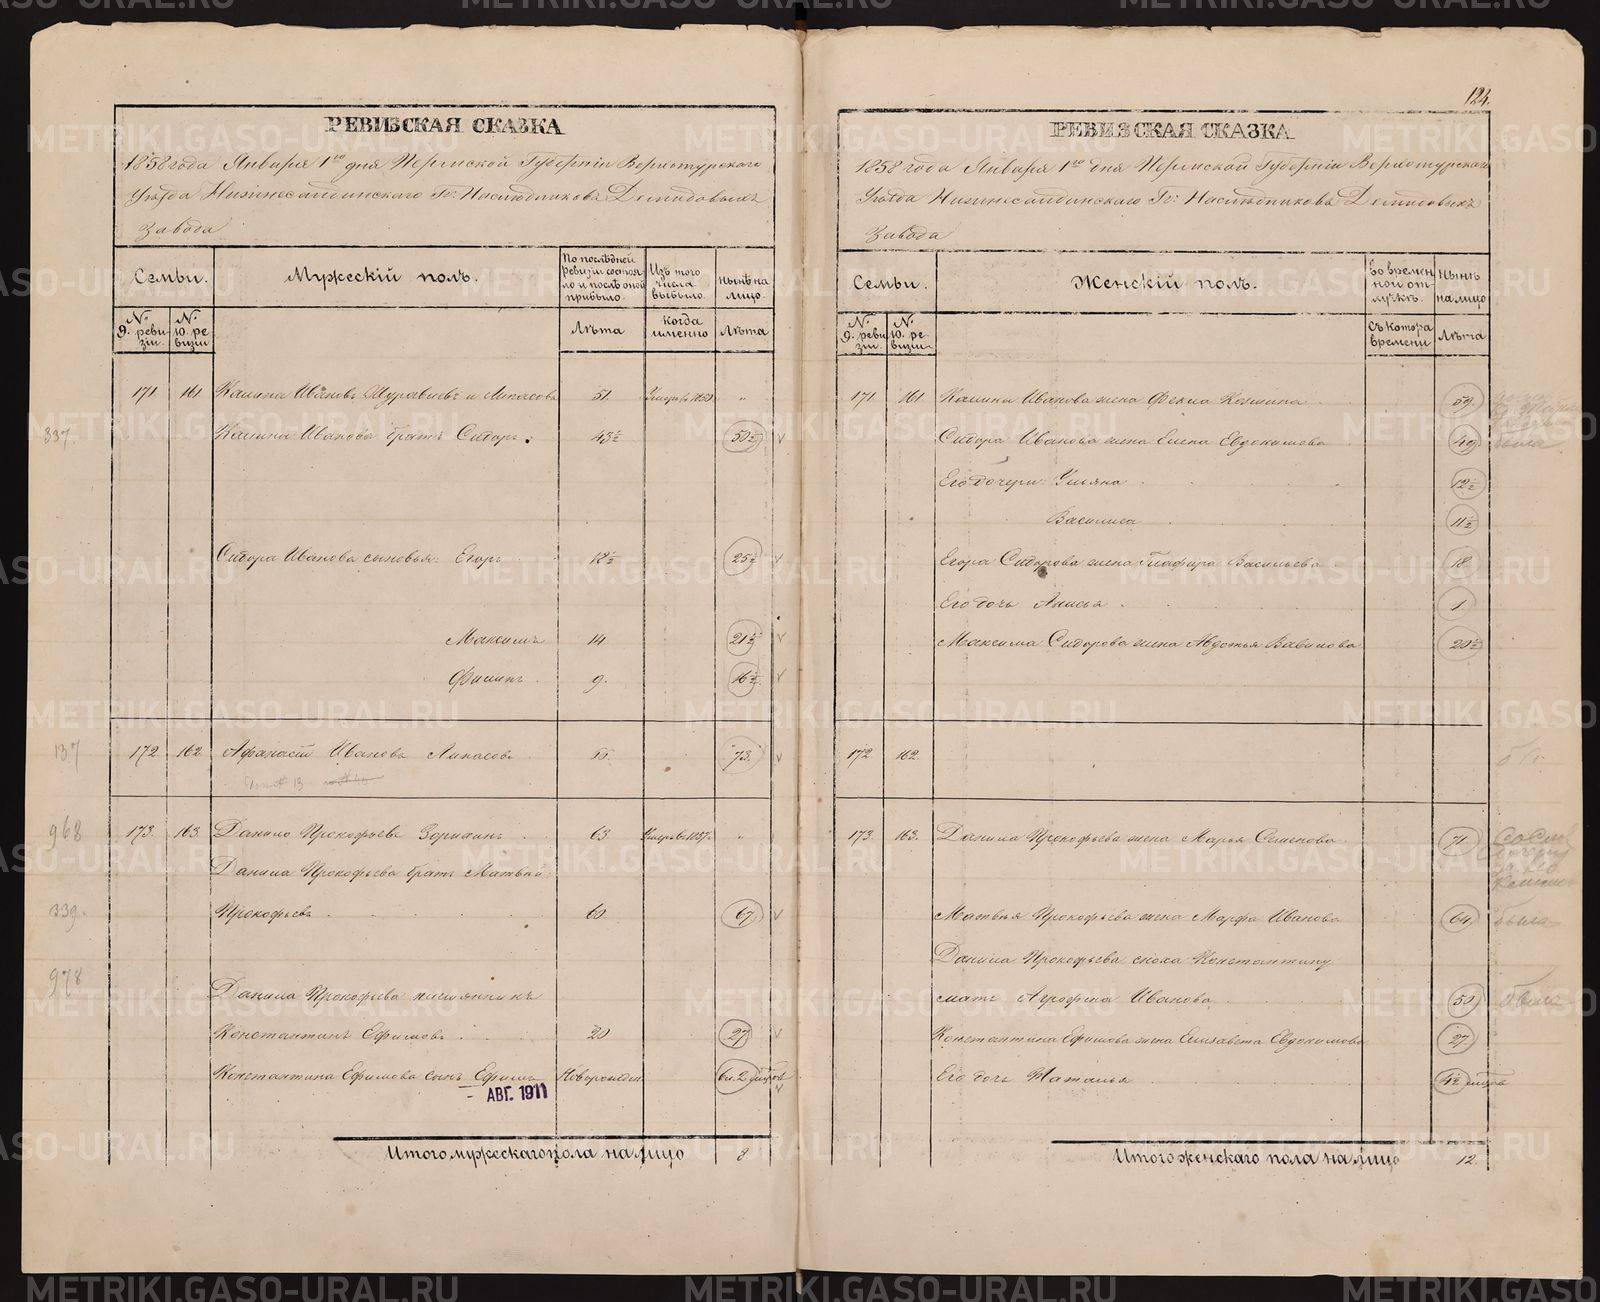 124.
РЕВИЗСКАЯ СКАЗКА
1858 года Января 1го дня Пермской Губернiи Верхотурскаго
Уѣзда Нижнесалдинскаго Гг: Наслѣдниковъ Демидовыхъ
Завода
Семьи.
Мужескiй полъ.
По послѣдней ревизiи состояло и послѣ оной прибыло
Изъ того числа выбыло.
Нынѣ на лицо.
№ 9. ревизiи.
№ 10. ревизiи
Лѣта
Когда именно
Лѣта
171. 161. Калина Ивановъ 51. Умеръ въ "
337 Калина Иванова братъ Сидоръ. 43½ 50½
Сидора Иванова сыновья: Егоръ 18½ 25½
Максимъ 14. 21½
Филипъ. 9. 16½
137 172. 162. Афанасiй Ивановъ 73.
968 173. 163. Данило Прокофьевъ 63. Умеръ въ 1857. "
Данила Прокофьева братъ Матвѣй
339. Прокофьевъ 60. 67.
978 Данила Прокофьева
Константинъ Ефимовъ. 20 27
Константина Ефимова сынъ Ефимъ Новорожден.
АВГ. 1911
Итого мужескаго пола на лицо 8
РЕВИЗСКАЯ СКАЗКА
1858 года Января 1го дня Пермской Губернiи Верхотурскаго
Уѣзда Нижнесалдинскаго Гг: Наслѣдниковъ Демидовыхъ
Завода
Семьи.
Женскiй полъ.
Во временной отлучкѣ.
Нынѣ на лицо
№ 9. ревизiи.
№ 10. ревизiи
Съ котора времени
Лѣта
171. 161. Калина Иванова жена Фекла 59.
Сидора Иванова жена Елена Евдокимова 49. была
Его дочери: Ульяна 12½
Василиса 11½
Егора Сидорова жена Глафира Васильева 18
Его дочь Анисья 1
Максима Сидорова жена Авдотья Вавилова 20½
172. 162.
173. 163. Данила Прокофьева жена Марья Семенова. 71
Матвѣя Прокофьева жена Марфа Иванова 64 была
Данила Прокофьева сноха Константину
мать Агрофена Иванова 50 была
Константина Ефимова жена Елизавета Евдокимова 27
Его дочь Наталья
Итого женскаго пола на лицо 12.
METRIKI.GASO-URAL.RU